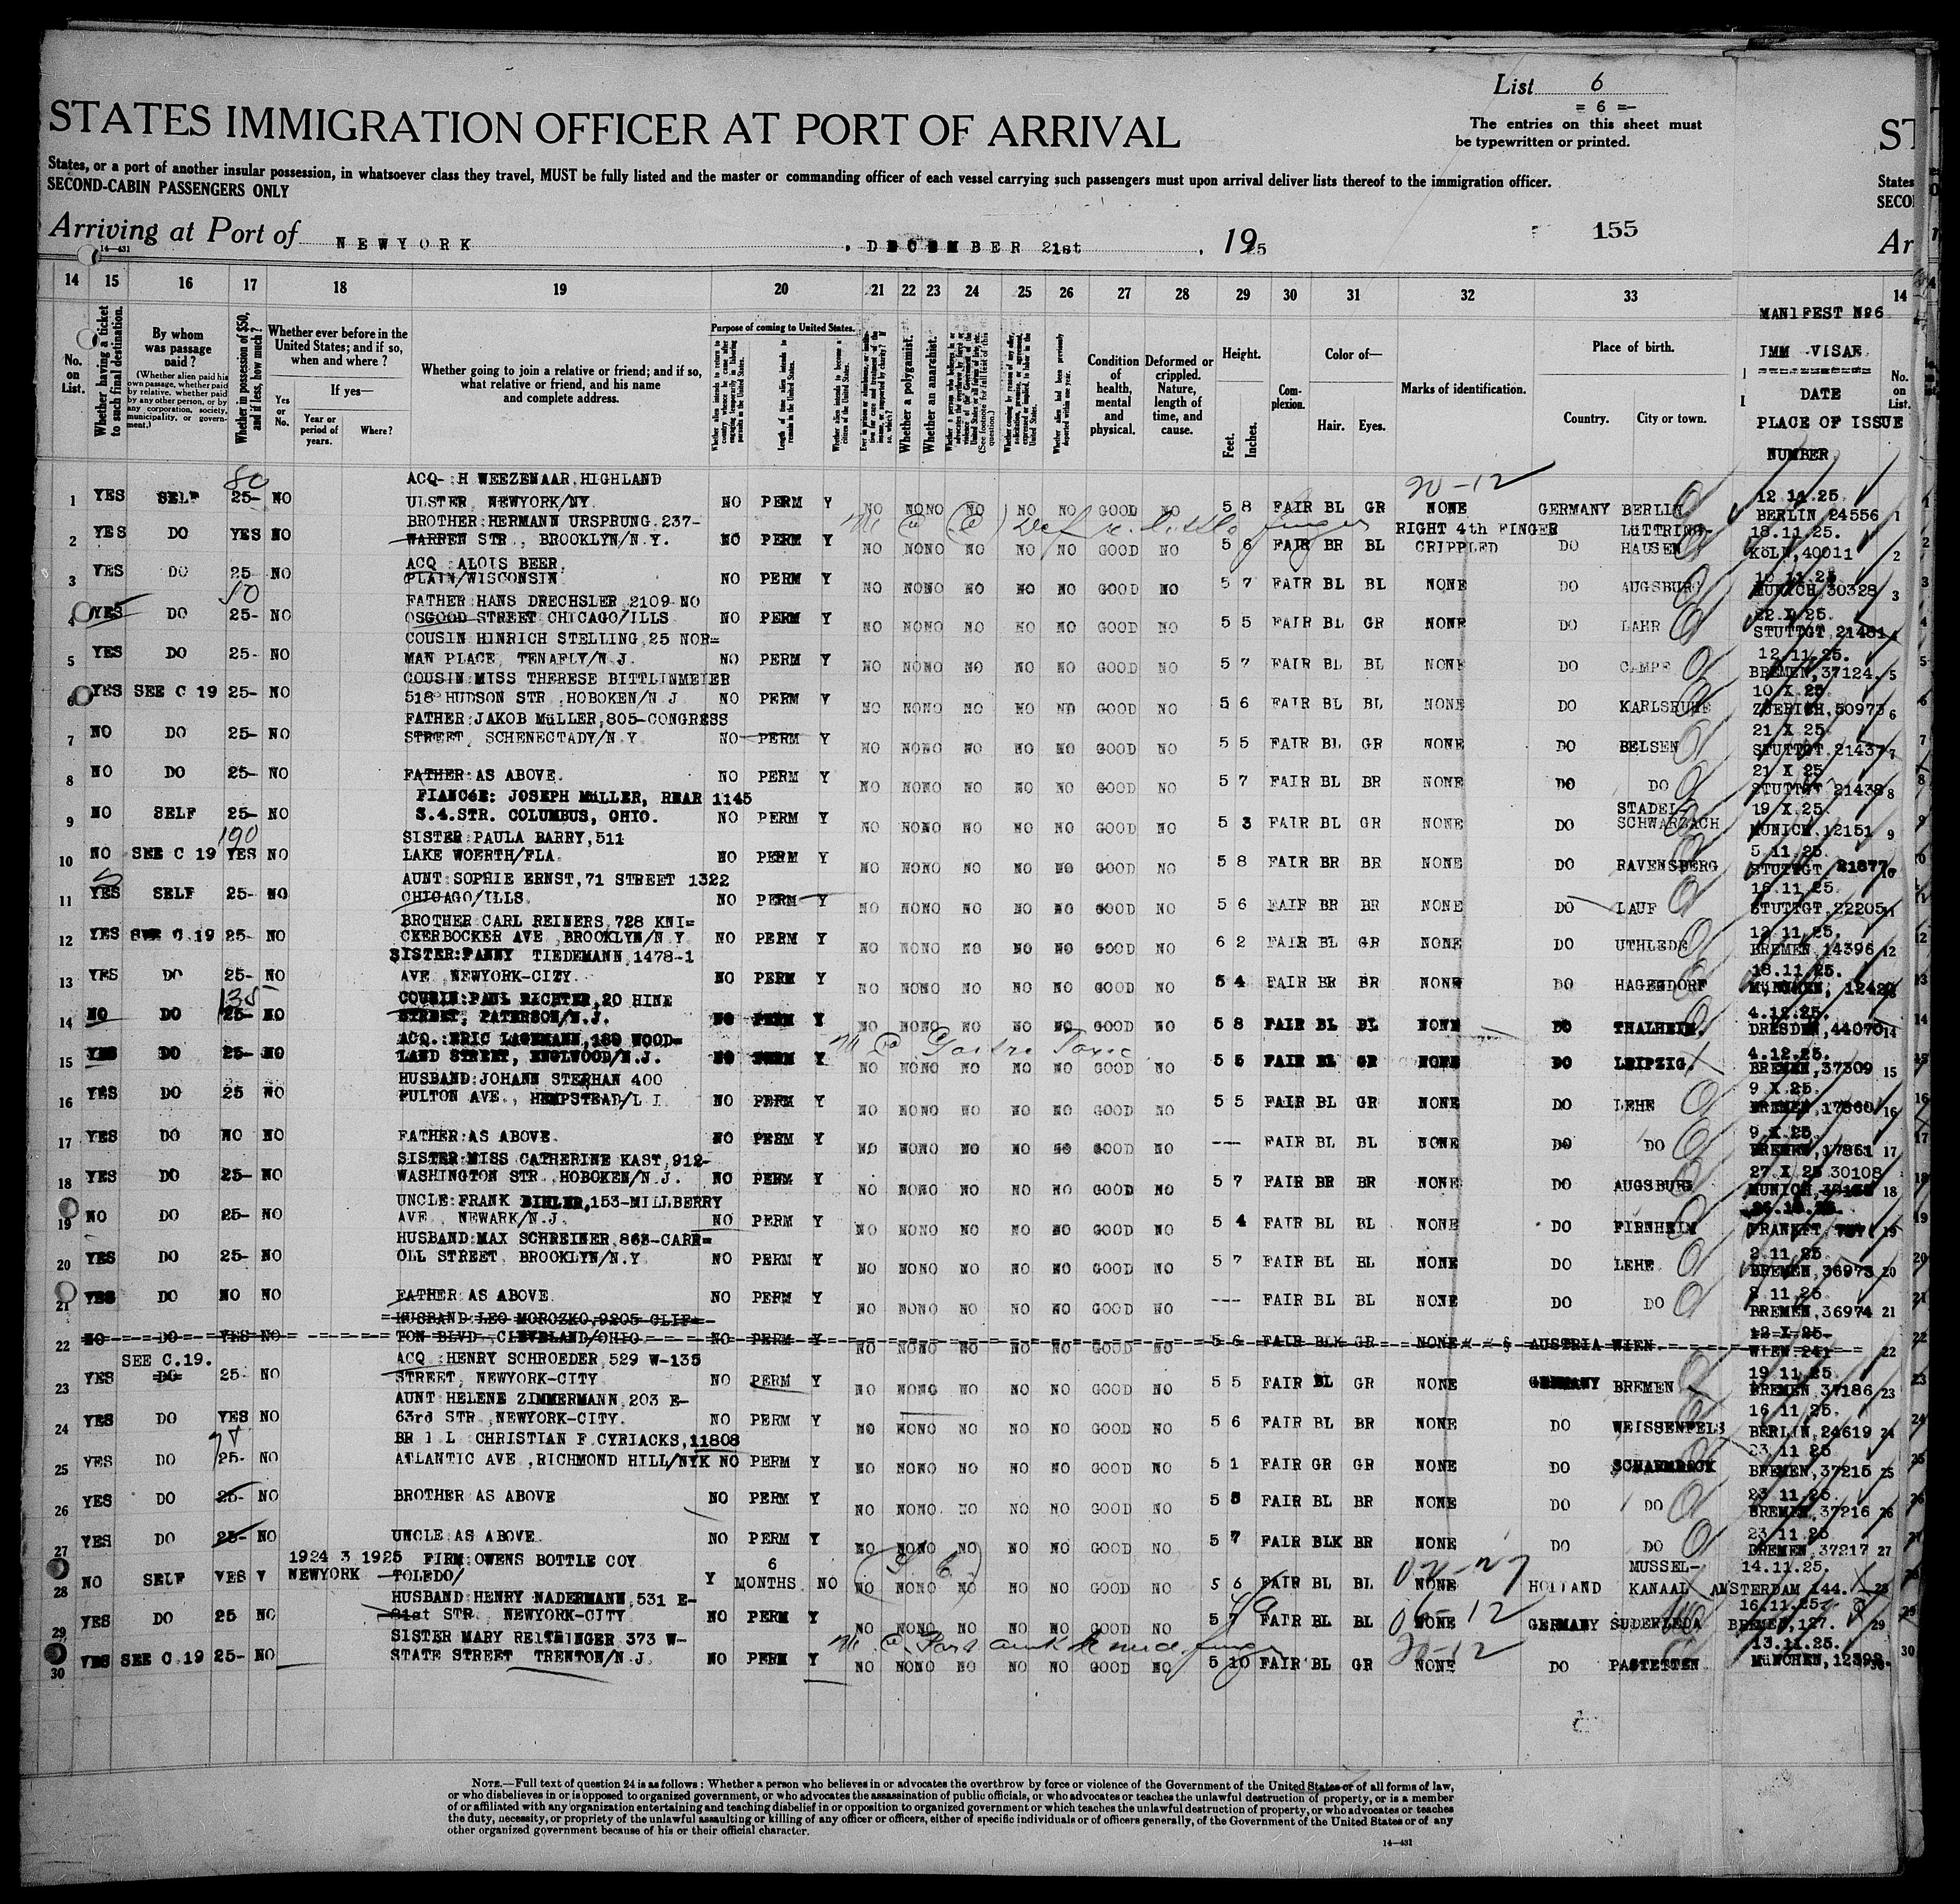 List 6
= 6 =-
STATES IMMIGRATION OFFICER AT PORT OF ARRIVAL
The entries on this sheet must
be typewritten or printed.
States, or a port of another insular possession, in whatsoever class they travel, MUST be fully listed and the master or commanding officer of each vessel carrying such passengers must upon arrival deliver lists thereof to the immigration officer.
SECOND-CABIN PASSENGERS ONLY
Arriving at Port of NEWYORK, DECEMBER 21st, 1925
155
14 15 16 17 18 19 20 21 22 23 24 25 26 27 28 29 30 31 32 33 14
No. on List.
Whether having a ticket to such final destination.
By whom was passage paid?
(Whether alien paid his own passage, whether paid by relative, whether paid by any other person, or by any corporation, society, municipality, or government.)
Whether in possession of $50, and if less, how much?
Whether ever before in the United States; and if so, when and where?
If yes—
Yes or No.
Year or period of years.
Where?
Whether going to join a relative or friend; and if so, what relative or friend, and his name and complete address.
Purpose of coming to United States.
Length of time alien intends to remain in the United States.
Whether alien intends to become a citizen of the United States.
Whether a polygamist.
Whether an anarchist.
Condition of health, mental and physical.
Deformed or crippled. Nature, length of time, and cause.
Height.
Feet. Inches.
Complexion.
Color of—
Hair. Eyes.
Marks of identification.
Place of birth.
Country. City or town.
MANIFEST No6
IMM VISAE
DATE
PLACE OF ISSUE
NUMBER
No. on List.
80 20-12
ACQ-:H WEEZENAAR, HIGHLAND
1 YES SELF 25- NO ULSTER, NEWYORK/NY. NO PERM Y NO NO NO NO NO NO GOOD NO 5 8 FAIR BL GR NONE GERMANY BERLIN 12.11.25. BERLIN 24556 1
BROTHER:HERMANN URSPRUNG, 237-
2 YES DO YES NO WARREN STR., BROOKLYN/N.Y. NO PERM Y NO NO NO NO NO NO GOOD NO 5 6 FAIR BR BL RIGHT 4th FINGER CRIPPLED DO LüTTRING-HAUSEN 18.11.25. KöLN, 40011 2
ACQ :ALOIS BEER,
3 YES DO 25- NO PLAIN/WISCONSIN NO PERM Y NO NO NO NO NO NO GOOD NO 5 7 FAIR BL BL NONE DO AUGSBURG MUNICH, 30328 3
50
FATHER:HANS DRECHSLER, 2109 NO
4 YES DO 25- NO OSGOOD STREET CHICAGO/ILLS NO PERM Y NO NO NO NO NO NO GOOD NO 5 5 FAIR BL GR NONE DO LAHR 22.X.25. STUTTGT, 21431 4
COUSIN HINRICH STELLING, 25 NOR=
5 YES DO 25- NO MAN PLACE, TENAFLY/N.J. NO PERM Y NO NO NO NO NO NO GOOD NO 5 7 FAIR BL BL NONE DO 12.11.25. BREMEN, 37124. 5
COUSIN:MISS THERESE BITTLINMEIER
6 YES SEE C 19 25- NO 518 HUDSON STR. HOBOKEN/N.J NO PERM Y NO NO NO NO NO NO GOOD NO 5 6 FAIR BL BL NONE DO KARLSRUHE 10 X.25 ZUERICH, 50973 6
FATHER:JAKOB MüLLER, 805-CONGRESS
7 NO DO 25- NO STREET, SCHENECTADY/N.Y. NO PERM Y NO NO NO NO NO NO GOOD NO 5 5 FAIR BL GR NONE DO BELSEN 21 X 25 STUTTGT 21437 7
8 NO DO 25- NO FATHER:AS ABOVE. NO PERM Y NO NO NO NO NO NO GOOD NO 5 7 FAIR BL BR NONE DO DO 21 X 25 STUTTGT 21438 8
FIANCéE: JOSEPH MüLLER, REAR 1145
9 NO SELF 25- NO S.4.STR. COLUMBUS, OHIO. NO PERM Y NO NO NO NO NO NO GOOD NO 5 3 FAIR BL GR NONE DO STADEL SCHWARZACH 19 X.25. MUNICH, 12151 9
190
SISTER:PAULA BARRY, 511
10 NO SEE C 19 YES NO LAKE WOERTH/FLA. NO PERM Y NO NO NO NO NO NO GOOD NO 5 8 FAIR BR BR NONE DO RAVENSBERG 5.11.25. STUTTGT 21877 10
AUNT:SOPHIE ERNST, 71 STREET 1322
11 YES SELF 25- NO CHICAGO/ILLS. NO PERM Y NO NO NO NO NO NO GOOD NO 5 6 FAIR BR BR NONE DO LAUF 16.11.25. STUTTGT.22205 11
BROTHER CARL REINERS, 728 KNI=
12 YES SEE C.19 25- NO CKERBOCKER AVE BROOKLYN/N.Y NO PERM Y NO NO NO NO NO NO GOOD NO 6 2 FAIR BL GR NONE DO UTHLEDE 12.11.25. BREMEN, 14396 12
SISTER:FANNY TIEDEMANN, 1478-1
13 YES DO 25- NO AVE NEWYORK-CITY. NO PERM Y NO NO NO NO NO NO GOOD NO 5 4 FAIR BR BR NONE DO HAGENDORF 18.11.25. MüNCHEN, 13
135
COUSIN:PAUL RICHTER, 20 HINE
14 NO DO 25- NO STREET, PATERSON/N.J. NO PERM Y NO NO NO NO NO NO GOOD NO 5 8 FAIR BL BL NONE DO THALHEIM. 4.12.25. DRESDEN, 44070 14
ACQ.:ERIC LAGEMANN, 189 WOOD=
15 YES DO 25- NO LAND STREET, ENGLWOOD/N.J. NO PERM Y NO NO NO NO NO NO GOOD NO 5 5 FAIR BL GR NONE DO LEIPZIG. 4.12.25. BREMEN, 37309 15
HUSBAND:JOHANN STEPHAN 400
16 YES DO 25 NO FULTON AVE., HEMPSTEAD/L I. NO PERM Y NO NO NO NO NO NO GOOD NO 5 5 FAIR BL GR NONE DO LEHE 9 X.25. BREMEN, 17860 16
17 YES DO NO NO FATHER:AS ABOVE. NO PERM Y NO NO NO NO NO NO GOOD NO --- FAIR BL BL NONE DO DO 9.X.25. BREMEN, 17861 17
SISTER:MISS CATHERINE KAST, 912-
18 YES DO 25- NO WASHINGTON STR. HOBOKEN/N.J. NO PERM Y NO NO NO NO NO NO GOOD NO 5 7 FAIR BR BR NONE DO AUGSBURG 27.X 25 30108 MUNICH 18
UNCLE:FRANK BIHLER, 153-MILLBERRY
19 NO DO 25- NO AVE., NEWARK/N.J. NO PERM Y NO NO NO NO NO NO GOOD NO 5 4 FAIR BL BL NONE DO FIRNHEIM FRANKFT 19
HUSBAND:MAX SCHREINER, 863-CARR=
20 YES DO 25- NO OLL STREET, BROOKLYN/N.Y. NO PERM Y NO NO NO NO NO NO GOOD NO 5 7 FAIR BL BL NONE DO LEHE 2.11.25. BREMEN, 36973 20
21 YES DO NO NO FATHER:AS ABOVE. NO PERM Y NO NO NO NO NO NO GOOD NO --- FAIR BL BL NONE DO DO 2.11.25. BREMEN, 36974 21
HUSBAND:LEO MOROZKO, 9205 CLIF=
22 NO DO YES NO TON BLVD., CLEVELAND/OHIO NO PERM Y NO NO NO NO NO NO GOOD NO 5 6 FAIR BLK GR NONE AUSTRIA WIEN. 12 X 25- WIEN 241 22
ACQ :HENRY SCHROEDER, 529 W-135
23 YES SEE C.19. DO 25- NO STREET, NEWYORK-CITY NO PERM Y NO NO NO NO NO NO GOOD NO 5 5 FAIR BL GR NONE GERMANY BREMEN 19 11.25 BREMEN, 37186 23
AUNT HELENE ZIMMERMANN, 203 E-
24 YES DO YES NO 63rd STR., NEWYORK-CITY. NO PERM Y NO NO NO NO NO NO GOOD NO 5 6 FAIR BL BR NONE DO WEISSENFELS 16 11 25. BERLIN, 24619 24
BR I L CHRISTIAN F CYRIACKS, 11808
25 YES DO 25- NO ATLANTIC AVE., RICHMOND HILL/NYK NO PERM Y NO NO NO NO NO NO GOOD NO 5 1 FAIR GR GR NONE DO 23 11 25 BREMEN, 37215 25
26 YES DO 25- NO BROTHER AS ABOVE NO PERM Y NO NO NO NO NO NO GOOD NO 5 FAIR BL BR NONE DO DO 23 11.25. BREMEN, 37216 26
27 YES DO 25- NO UNCLE:AS ABOVE. NO PERM Y NO NO NO NO NO NO GOOD NO 5 7 FAIR BLK BR NONE DO DO 23 11.25 BREMEN, 37217 27
1924 3 1925 FIRM:OWENS BOTTLE COY
28 NO SELF YES Y NEWYORK TOLEDO/ Y 6 MONTHS NO NO NO NO NO NO NO GOOD NO 5 6 FAIR BL BL NONE HOLLAND MUSSEL-KANAAL 14.11.25. AMSTERDAM 144. 28
HUSBAND:HENRY NADERMANN, 531 E-
29 YES DO 25 NO 81st STR., NEWYORK-CITY NO PERM Y NO NO NO NO NO NO GOOD NO 5 7 FAIR BL BL NONE GERMANY SUDERLEDA 16.11.25. BREMEN, 127. 29
SISTER MARY REITHINGER 373 W-
30 YES SEE C 19 25- NO STATE STREET TRENTON/N.J. NO PERM Y NO NO NO NO NO NO GOOD NO 5 10 FAIR BL GR 20-12 NONE DO PASTETTEN 13.11.25. MüNCHEN, 30
NOTE.—Full text of question 24 is as follows: Whether a person who believes in or advocates the overthrow by force or violence of the Government of the United States or of all forms of law,
or who disbelieves in or is opposed to organized government, or who advocates the assassination of public officials, or who advocates or teaches the unlawful destruction of property, or is a member
of or affiliated with any organization entertaining and teaching disbelief in or opposition to organized government or which teaches the unlawful destruction of property, or who advocates or teaches
the duty, necessity, or propriety of the unlawful assaulting or killing of any officer or officers, either of specific individuals or of officers generally, of the Government of the United States or of any
other organized government because of his or their official character.
14—431